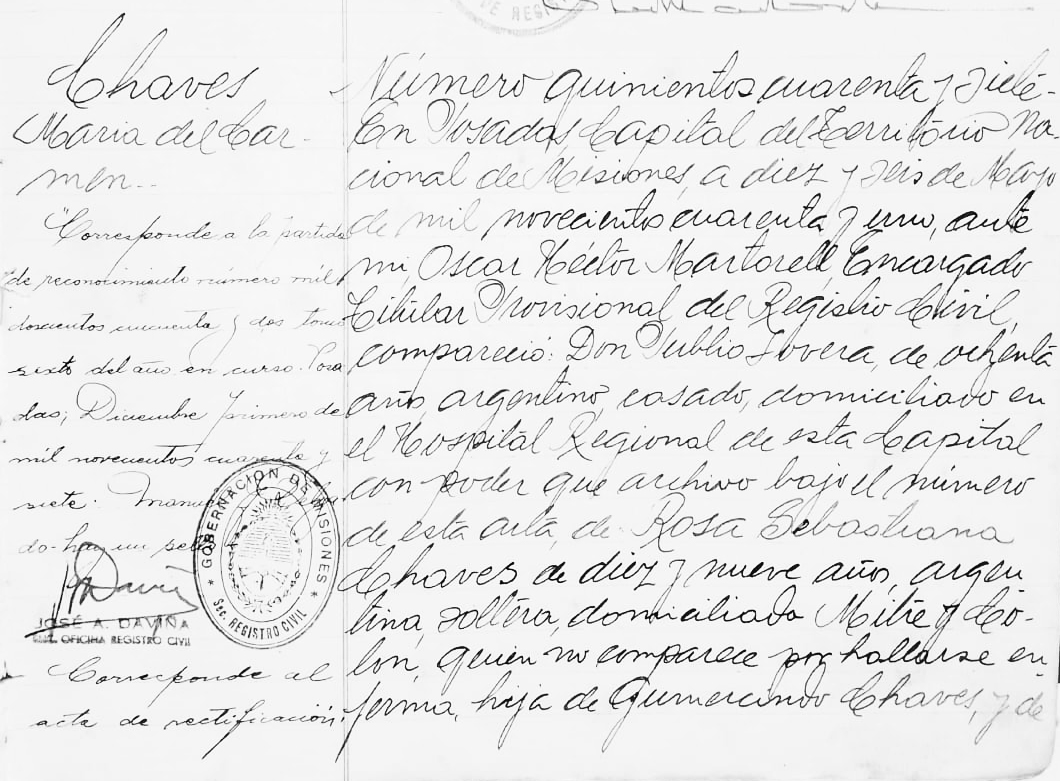 DE REGI
Chaves
Maria del Car-
men..
"Corresponde a la partida
de reconocimiento número mil
doscientos cincuenta y dos tomo
sexto del año en curso. Posa
das, Diciembre primero de
mil novecientos cuarenta y
siete.
do-hay un sello
GOBERNACION DE MISIONES
Sec. REGISTRO CIVIL
JOSÉ A. DAVIÑA
OFICINA REGISTRO CIVIL
Corresponde al
acta de rectificación.
Número quinientos cuarenta y siete-
En Posadas, Capital del Territorio Na-
cional de Misiones, a diez y seis de Mayo
de mil novecientos cuarenta y uno, ante
mi, Oscar Héctor Martorell, Encargado
Titular Provisional del Registro Civil,
compareció: Don Publio Lovera, de ochenta
años, argentino, casado, domiciliado en
el Hospital Regional de esta Capital
con poder que archivo bajo el número
de esta acta, de Rosa Sebastiana
Chaves de diez y nueve años, argen
tina, soltera, domiciliada Mitre y Co-
lon, quien no comparece por hallarse en-
ferma, hija de Gumercindo Chaves, y de